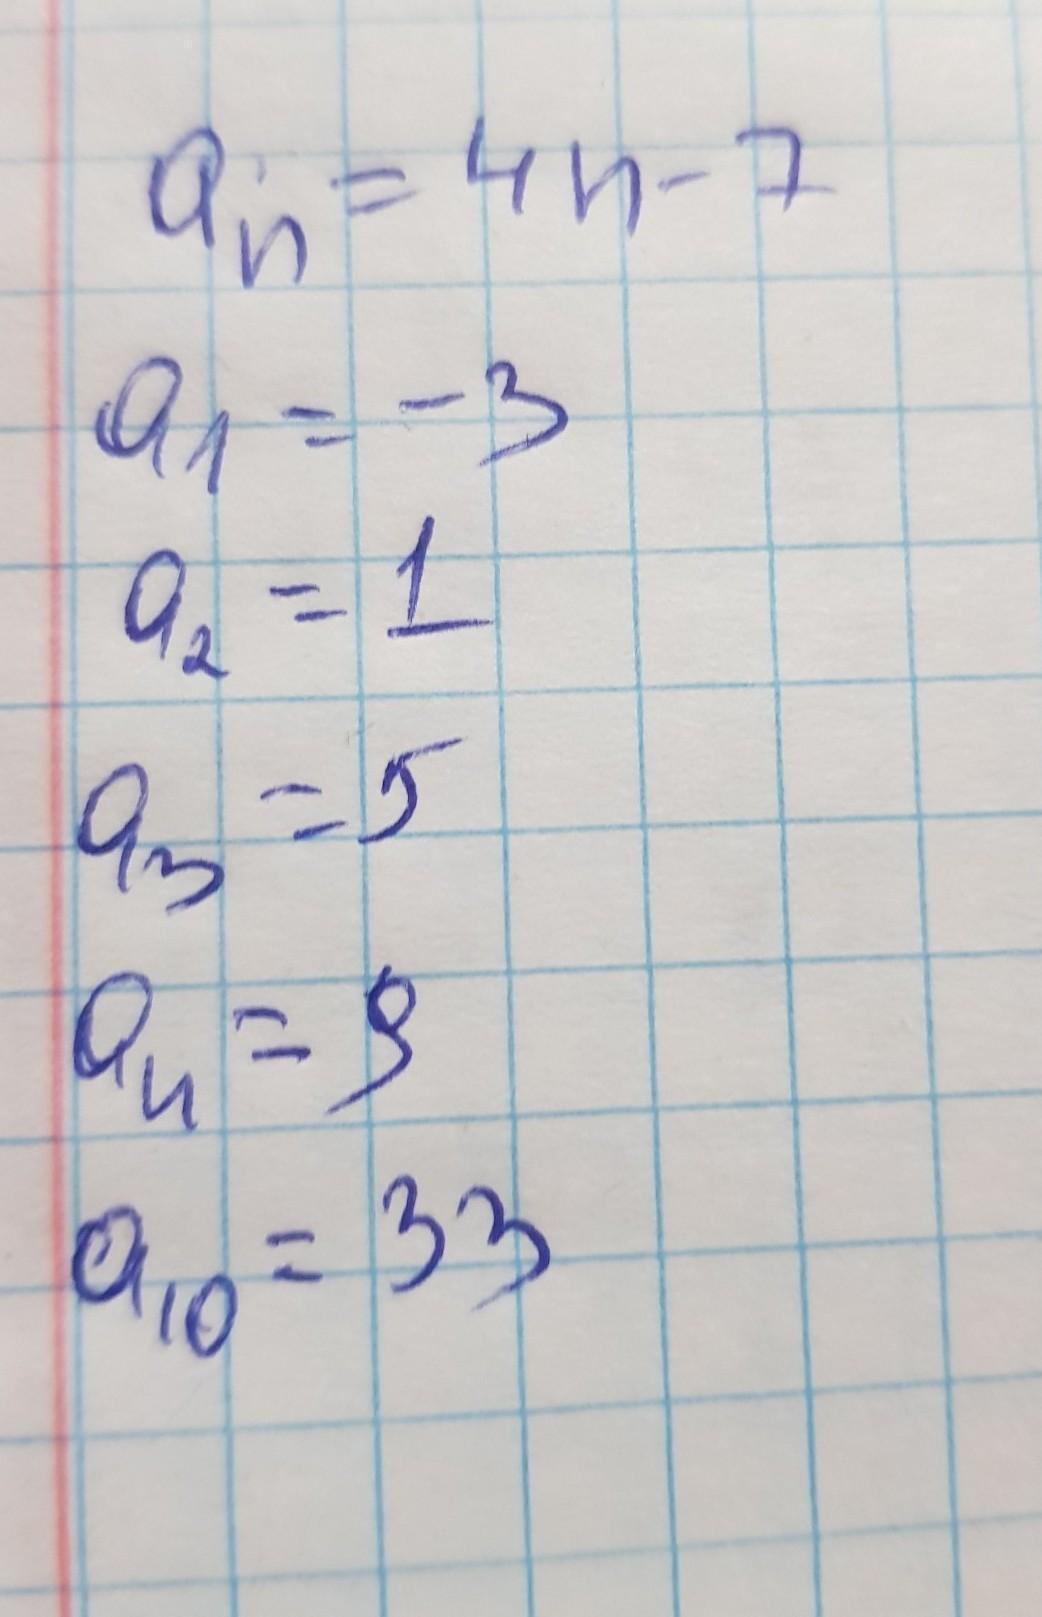 aₙ = 4n - 7
a₁ = -3
a₂ = 1
a₃ = 5
a₄ = 9
a₁₀ = 33